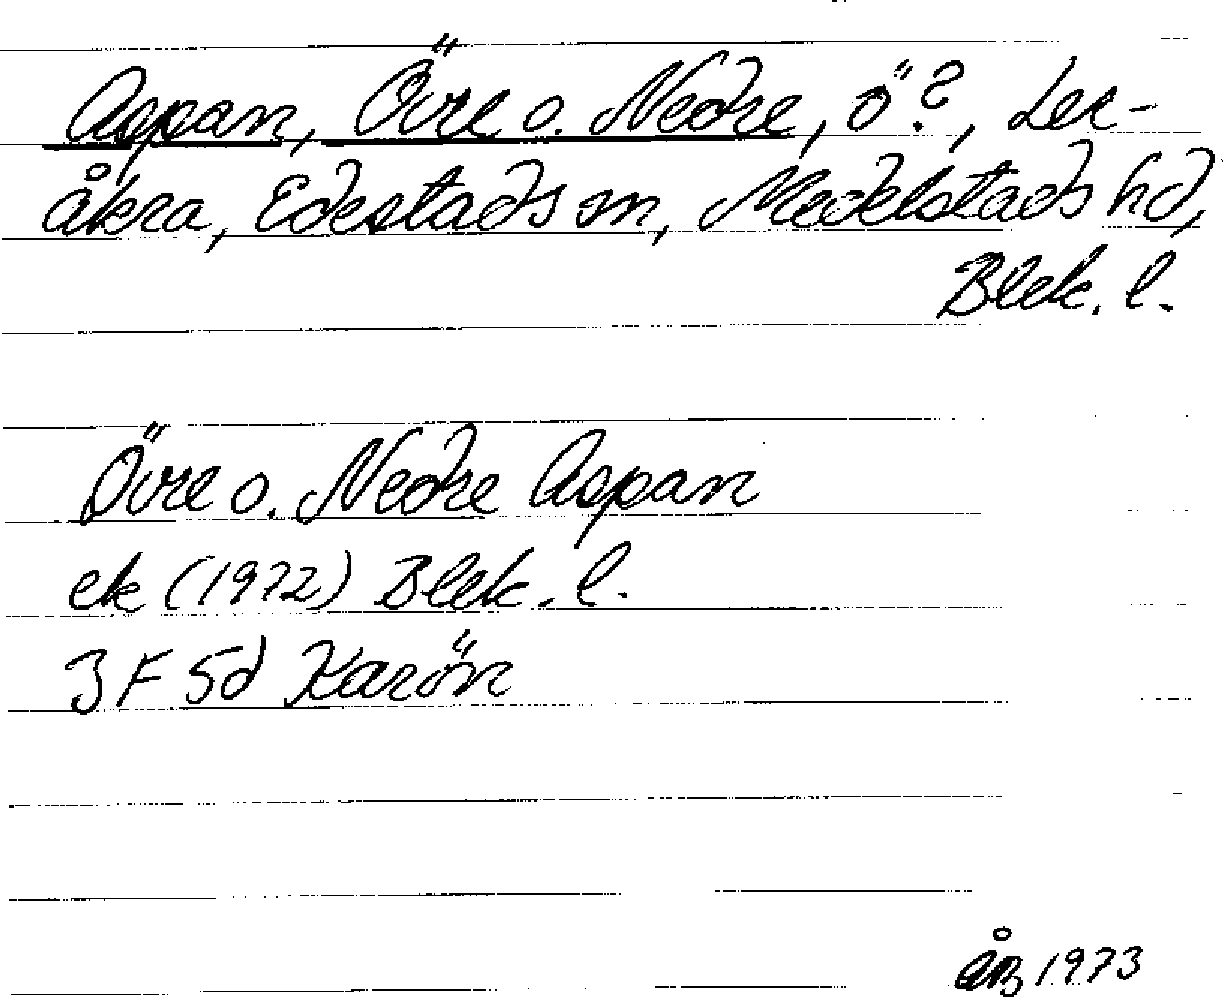 Aspan, Övre o. Nedre, ö?, Ler-
åkra, Edestads sn, Medelstads hd,
Blek. l.
Övre o. Nedre Aspan
ek (1972) Blek. l.
3F 5d Karön
ÅB 1973